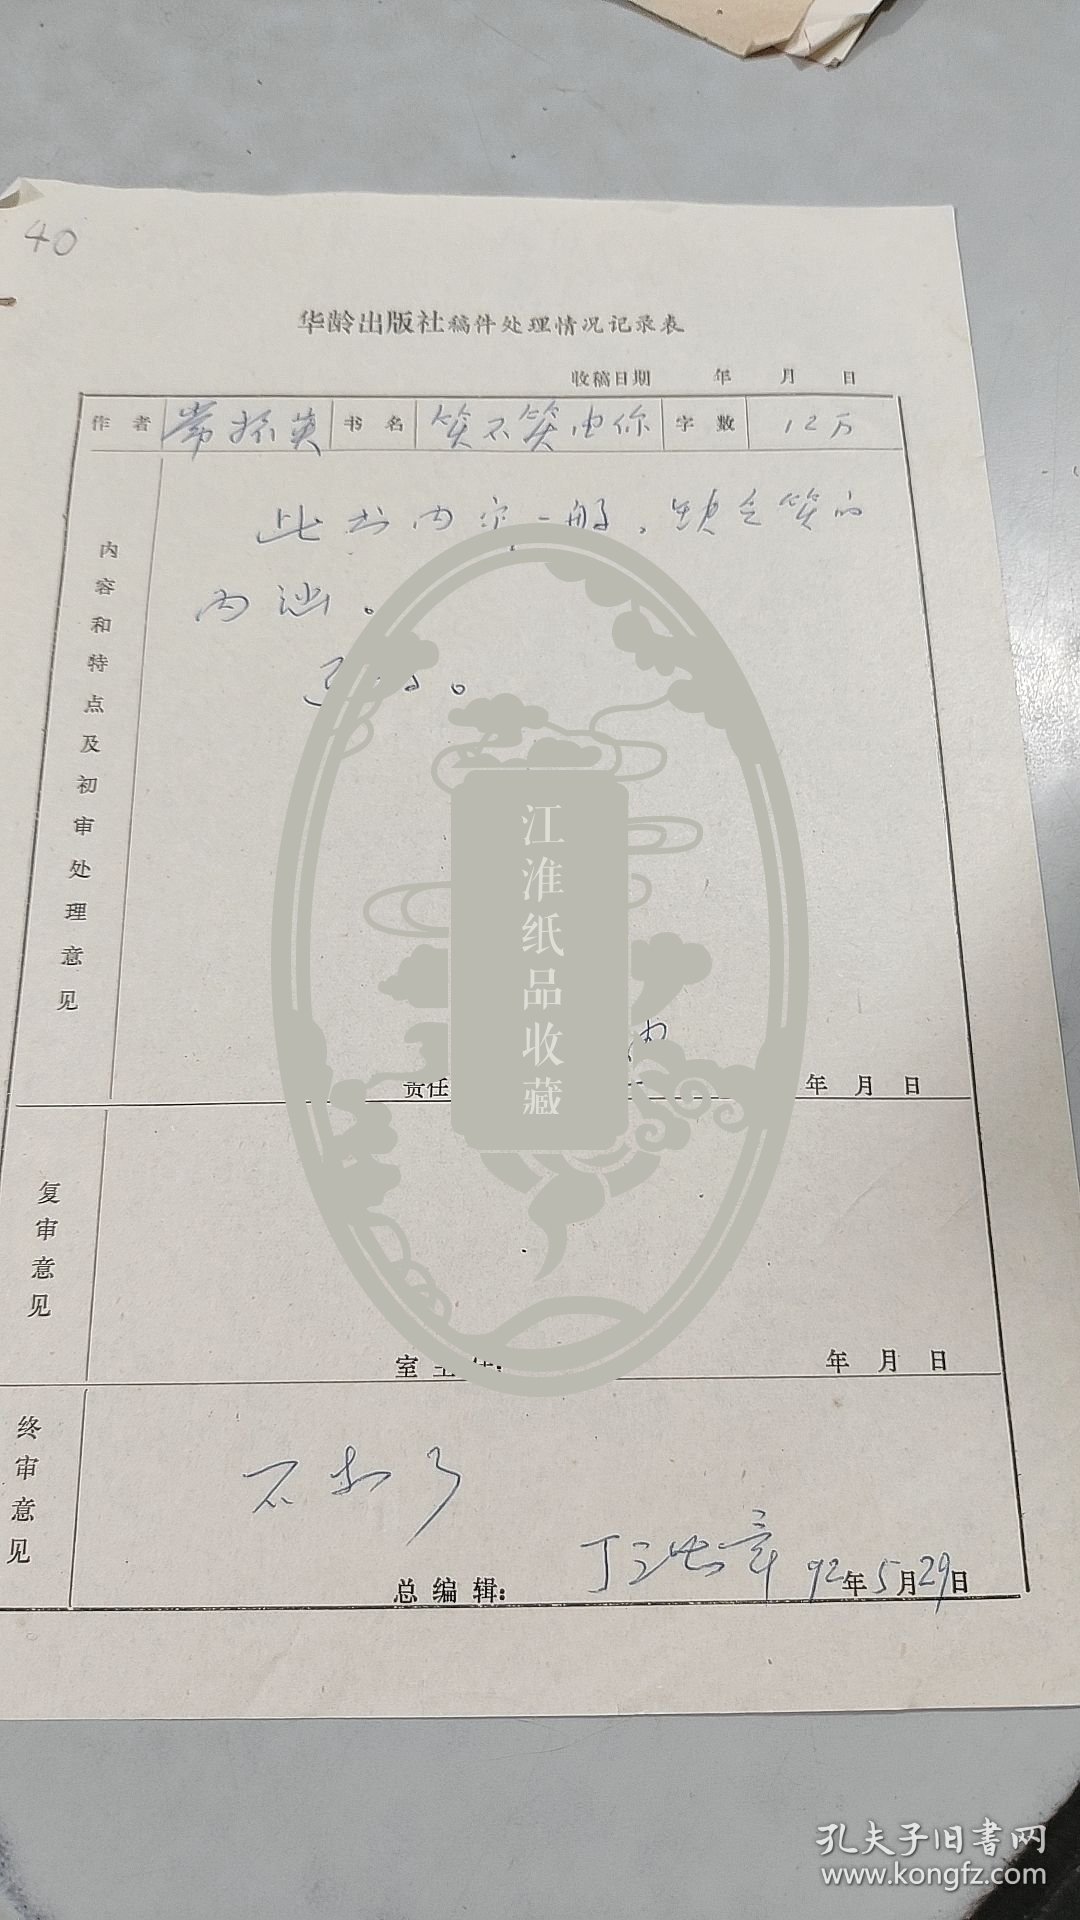 40
华龄出版社稿件处理情况记录表
收稿日期 年 月 日
作者 常振英 书名 笑不笑由你 字数 12万
内容和特点及初审处理意见
此书内容一般，缺乏笑的
内涵。
责任
年 月 日
复审意见
室主任：
年 月 日
终审意见
总编辑：
92年5月29日
江淮纸品收藏
孔夫子旧书网
www.kongfz.com